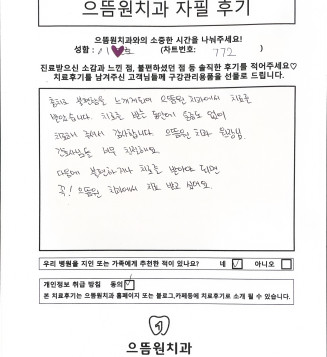 으뜸원치과 자필 후기
으뜸원치과와의 소중한 시간을 나눠주세요!
성함 : 이 (차트번호: 772 )
진료받으신 소감과 느낀 점, 불편하셨던 점 등 솔직한 후기를 적어주세요♡
치료후기를 남겨주신 고객님들께 구강관리용품을 선물로 드립니다.
불편함을 느끼게되어 으뜸원 치과에서 치료를
받았습니다. 치료를 받는 동안에 없이
치료해 주셔서 감사합니다. 으뜸원 치과 원장님,
간호사님들 너무 친절해요.
다음에 불편하거나 치료를 받아야 되면
꼭! 으뜸원 치과에서 치료 받고 싶어요.
우리 병원을 지인 또는 가족에게 추천한 적이 있나요? 네 ☑ 아니오 □
개인정보 취급 방침 동의 ☑
본 치료후기는 으뜸원치과 홈페이지 또는 블로그,카페등에 치료후기로 소개 될 수 있습니다.
으뜸원치과